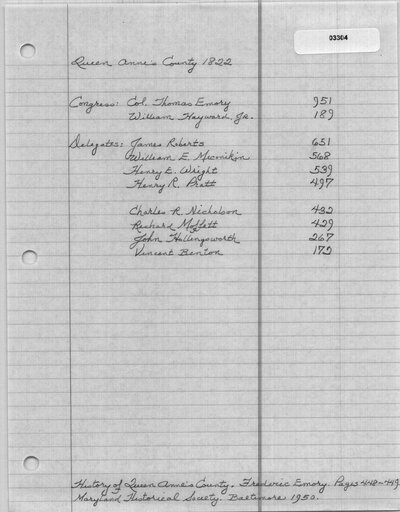 03304
Queen Anne's County 1822
Congress: Col. Thomas Emory 951
William Hayward, Jr. 189
Delegates: James Roberts 651
William E. Meconikin 568
Henry E. Wright 539
Henry R. Pratt 497
Charles R. Nicholson 432
Richard Moffett 429
John Hollingsworth 267
Vincent Benton 172
History of Queen Anne's County. Frederic Emory. Pages 448-449
Maryland Historical Society. Baltimore 1950.